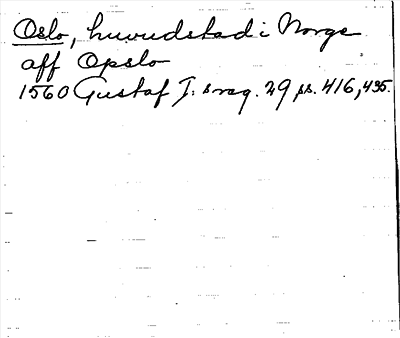 Oslo, huvudstad i Norge
aff Opslo
1560 Gustaf I:s reg. 29 ss. 416, 495.